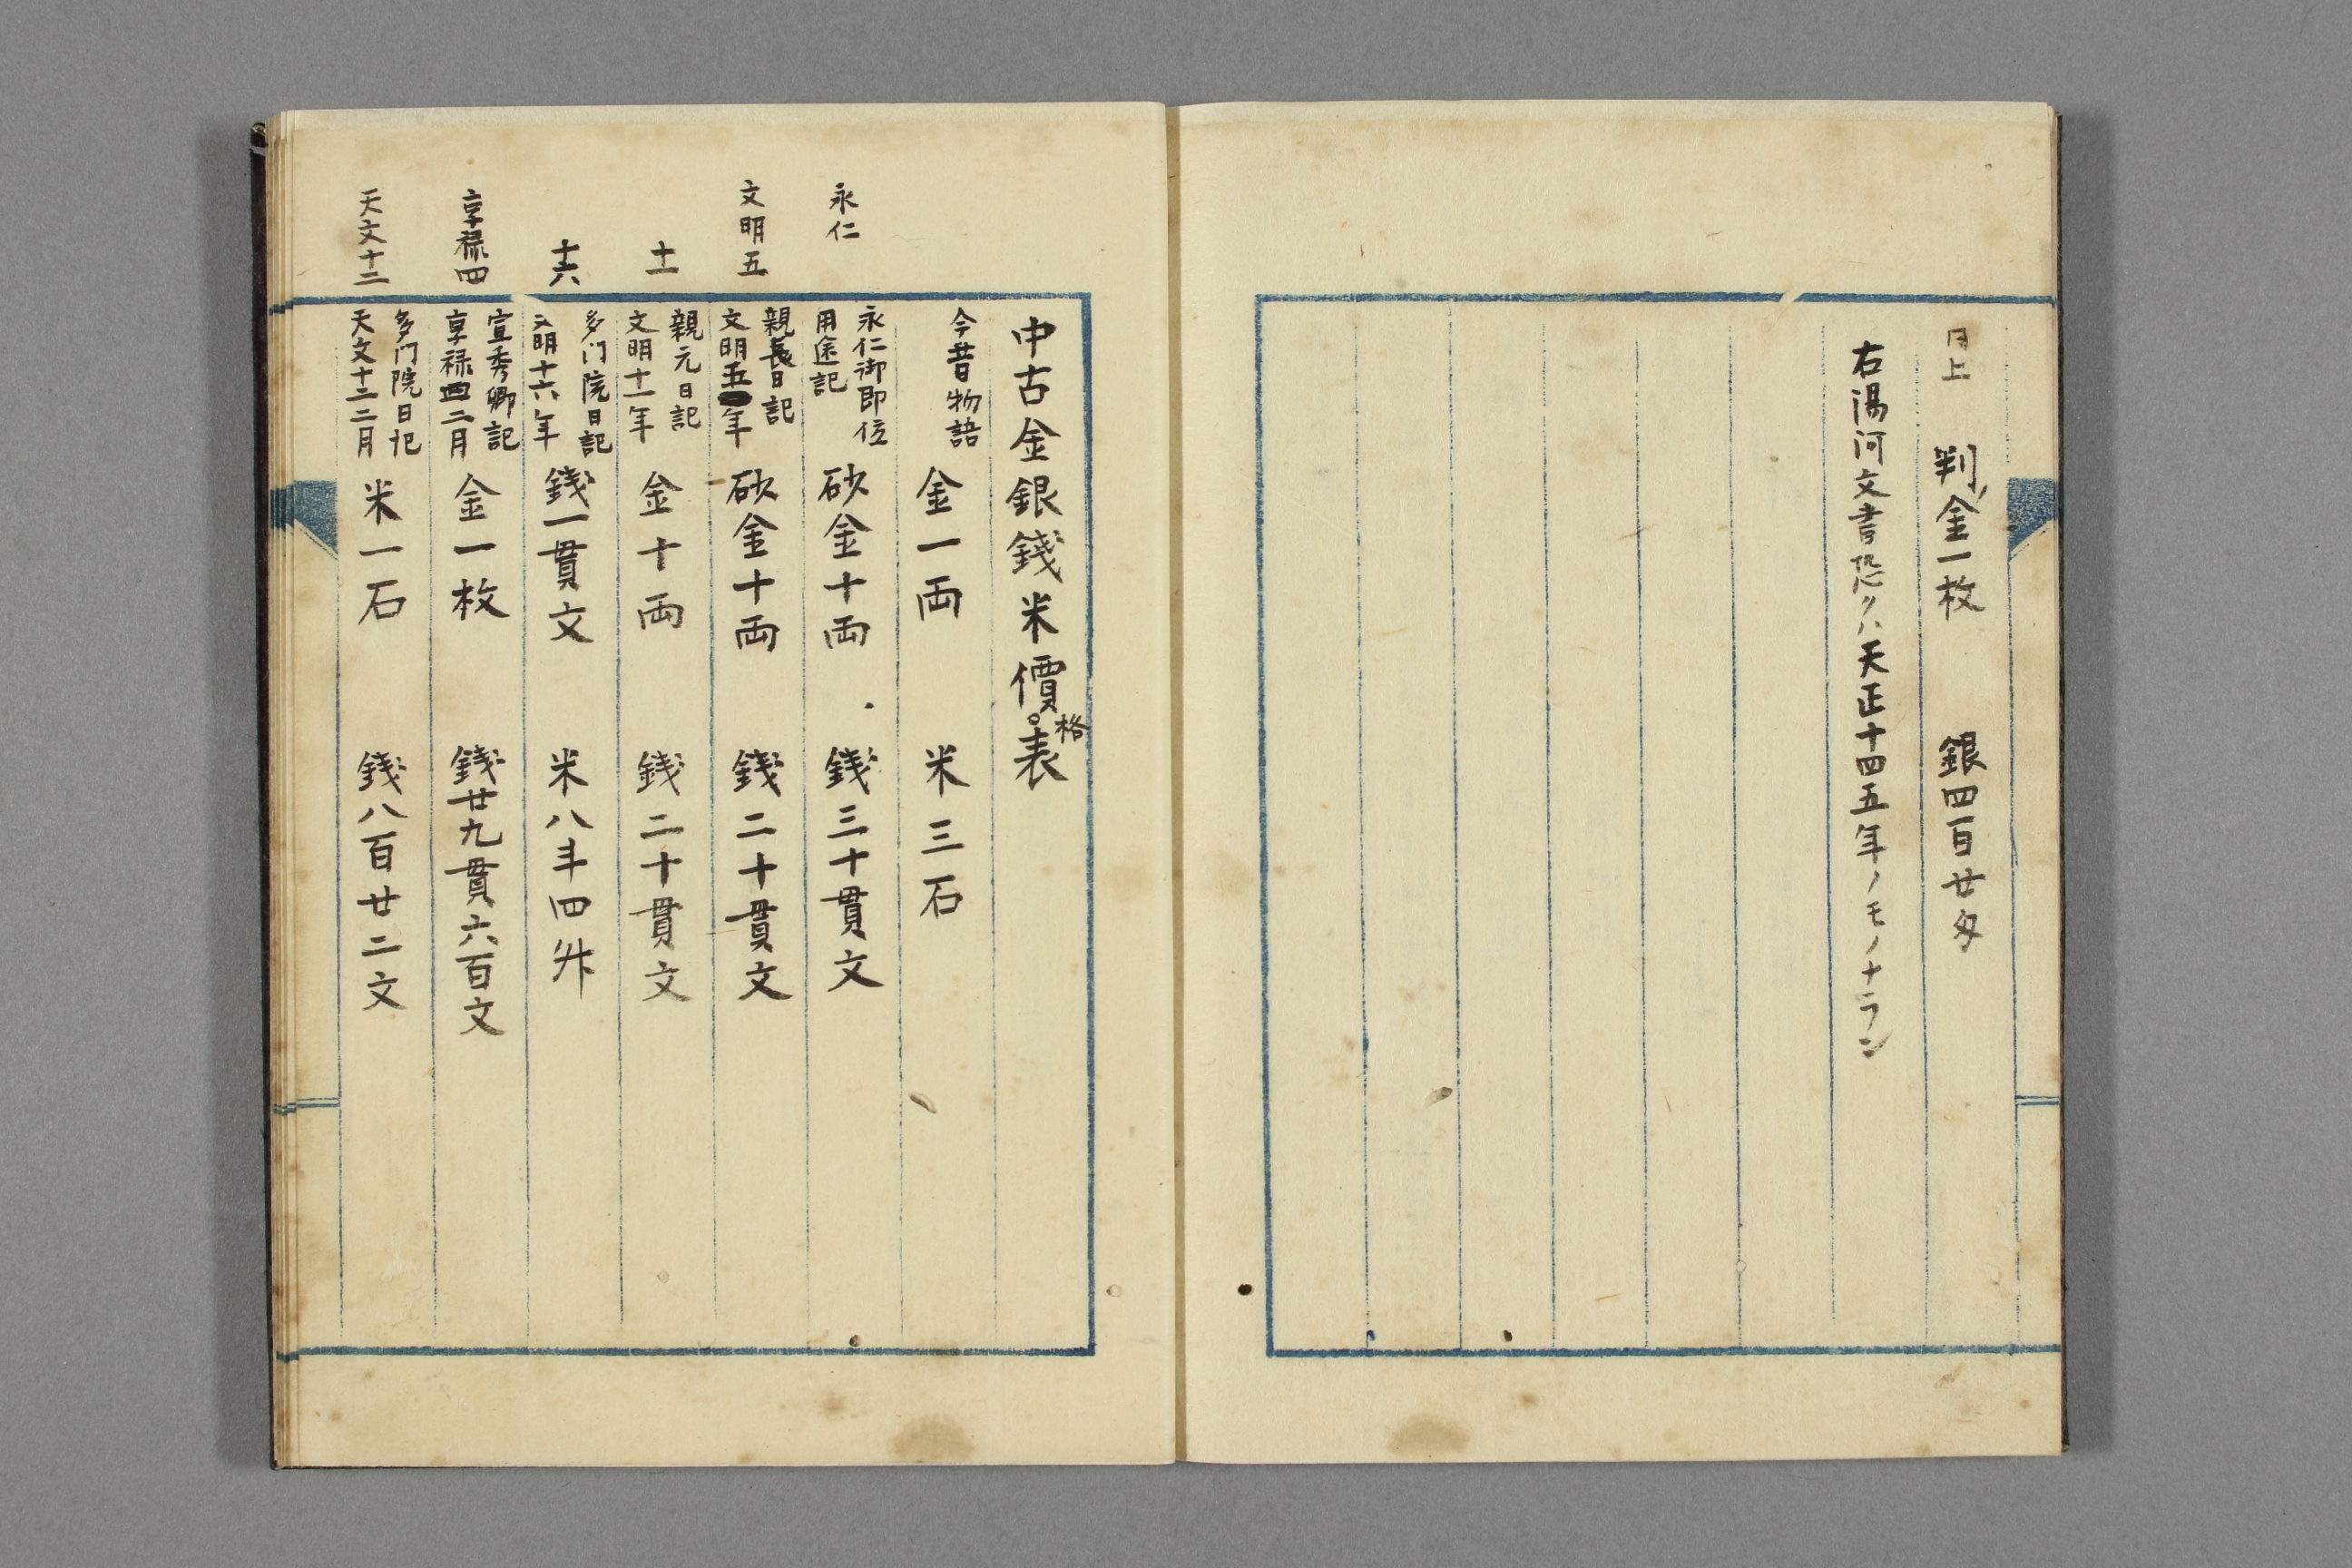 同上 判金一枚 銀四百廿匁
右湯河文書恐クハ天正十四五年ノモノナラン
中古金銀錢米價格表
今昔物語 金一両 米三石
永仁
永仁御即位
用途記
砂金十両 錢三十貫文
文明五
親長日記
文明五年
砂金十両 錢二十貫文
十一
親元日記
文明十一年
金十両 錢二十貫文
十六
多门院日記
文明十六年
錢一貫文 米八斗四升
享禄四
宣秀卿記
享禄四二月
金一枚 錢廿九貫六百文
天文十二
多门院日記
天文十二二月
米一石 錢八百廿二文